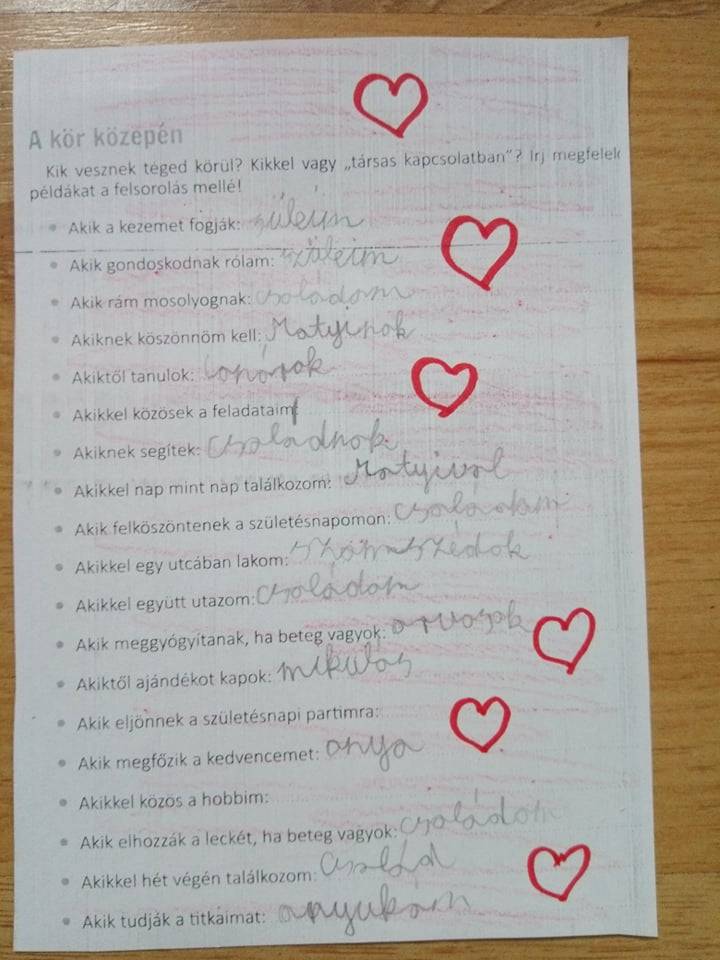 A kör közepén
Kik vesznek téged körül? Kikkel vagy „társas kapcsolatban”? Írj megfelelő
példákat a felsorolás mellé!
• Akik a kezemet fogják: züleim
• Akik gondoskodnak rólam: szüleim
• Akik rám mosolyognak: családom
• Akiknek köszönnöm kell: Matyinak
• Akiktől tanulok:
• Akikkel közösek a feladataim
• Akiknek segítek: Családnak
• Akikkel nap mint nap találkozom: Matyival
• Akik felköszöntenek a születésnapomon: családom
• Akikkel egy utcában lakom: szomszédok
• Akikkel együtt utazom: családom
• Akik meggyógyítanak, ha beteg vagyok: orvosok
• Akiktől ajándékot kapok: mikulás
• Akik eljönnek a születésnapi partimra:
• Akik megfőzik a kedvencemet: anya
• Akikkel közös a hobbim:
• Akik elhozzák a leckét, ha beteg vagyok: családom
• Akikkel hét végén találkozom: család
• Akik tudják a titkaimat: anyukám